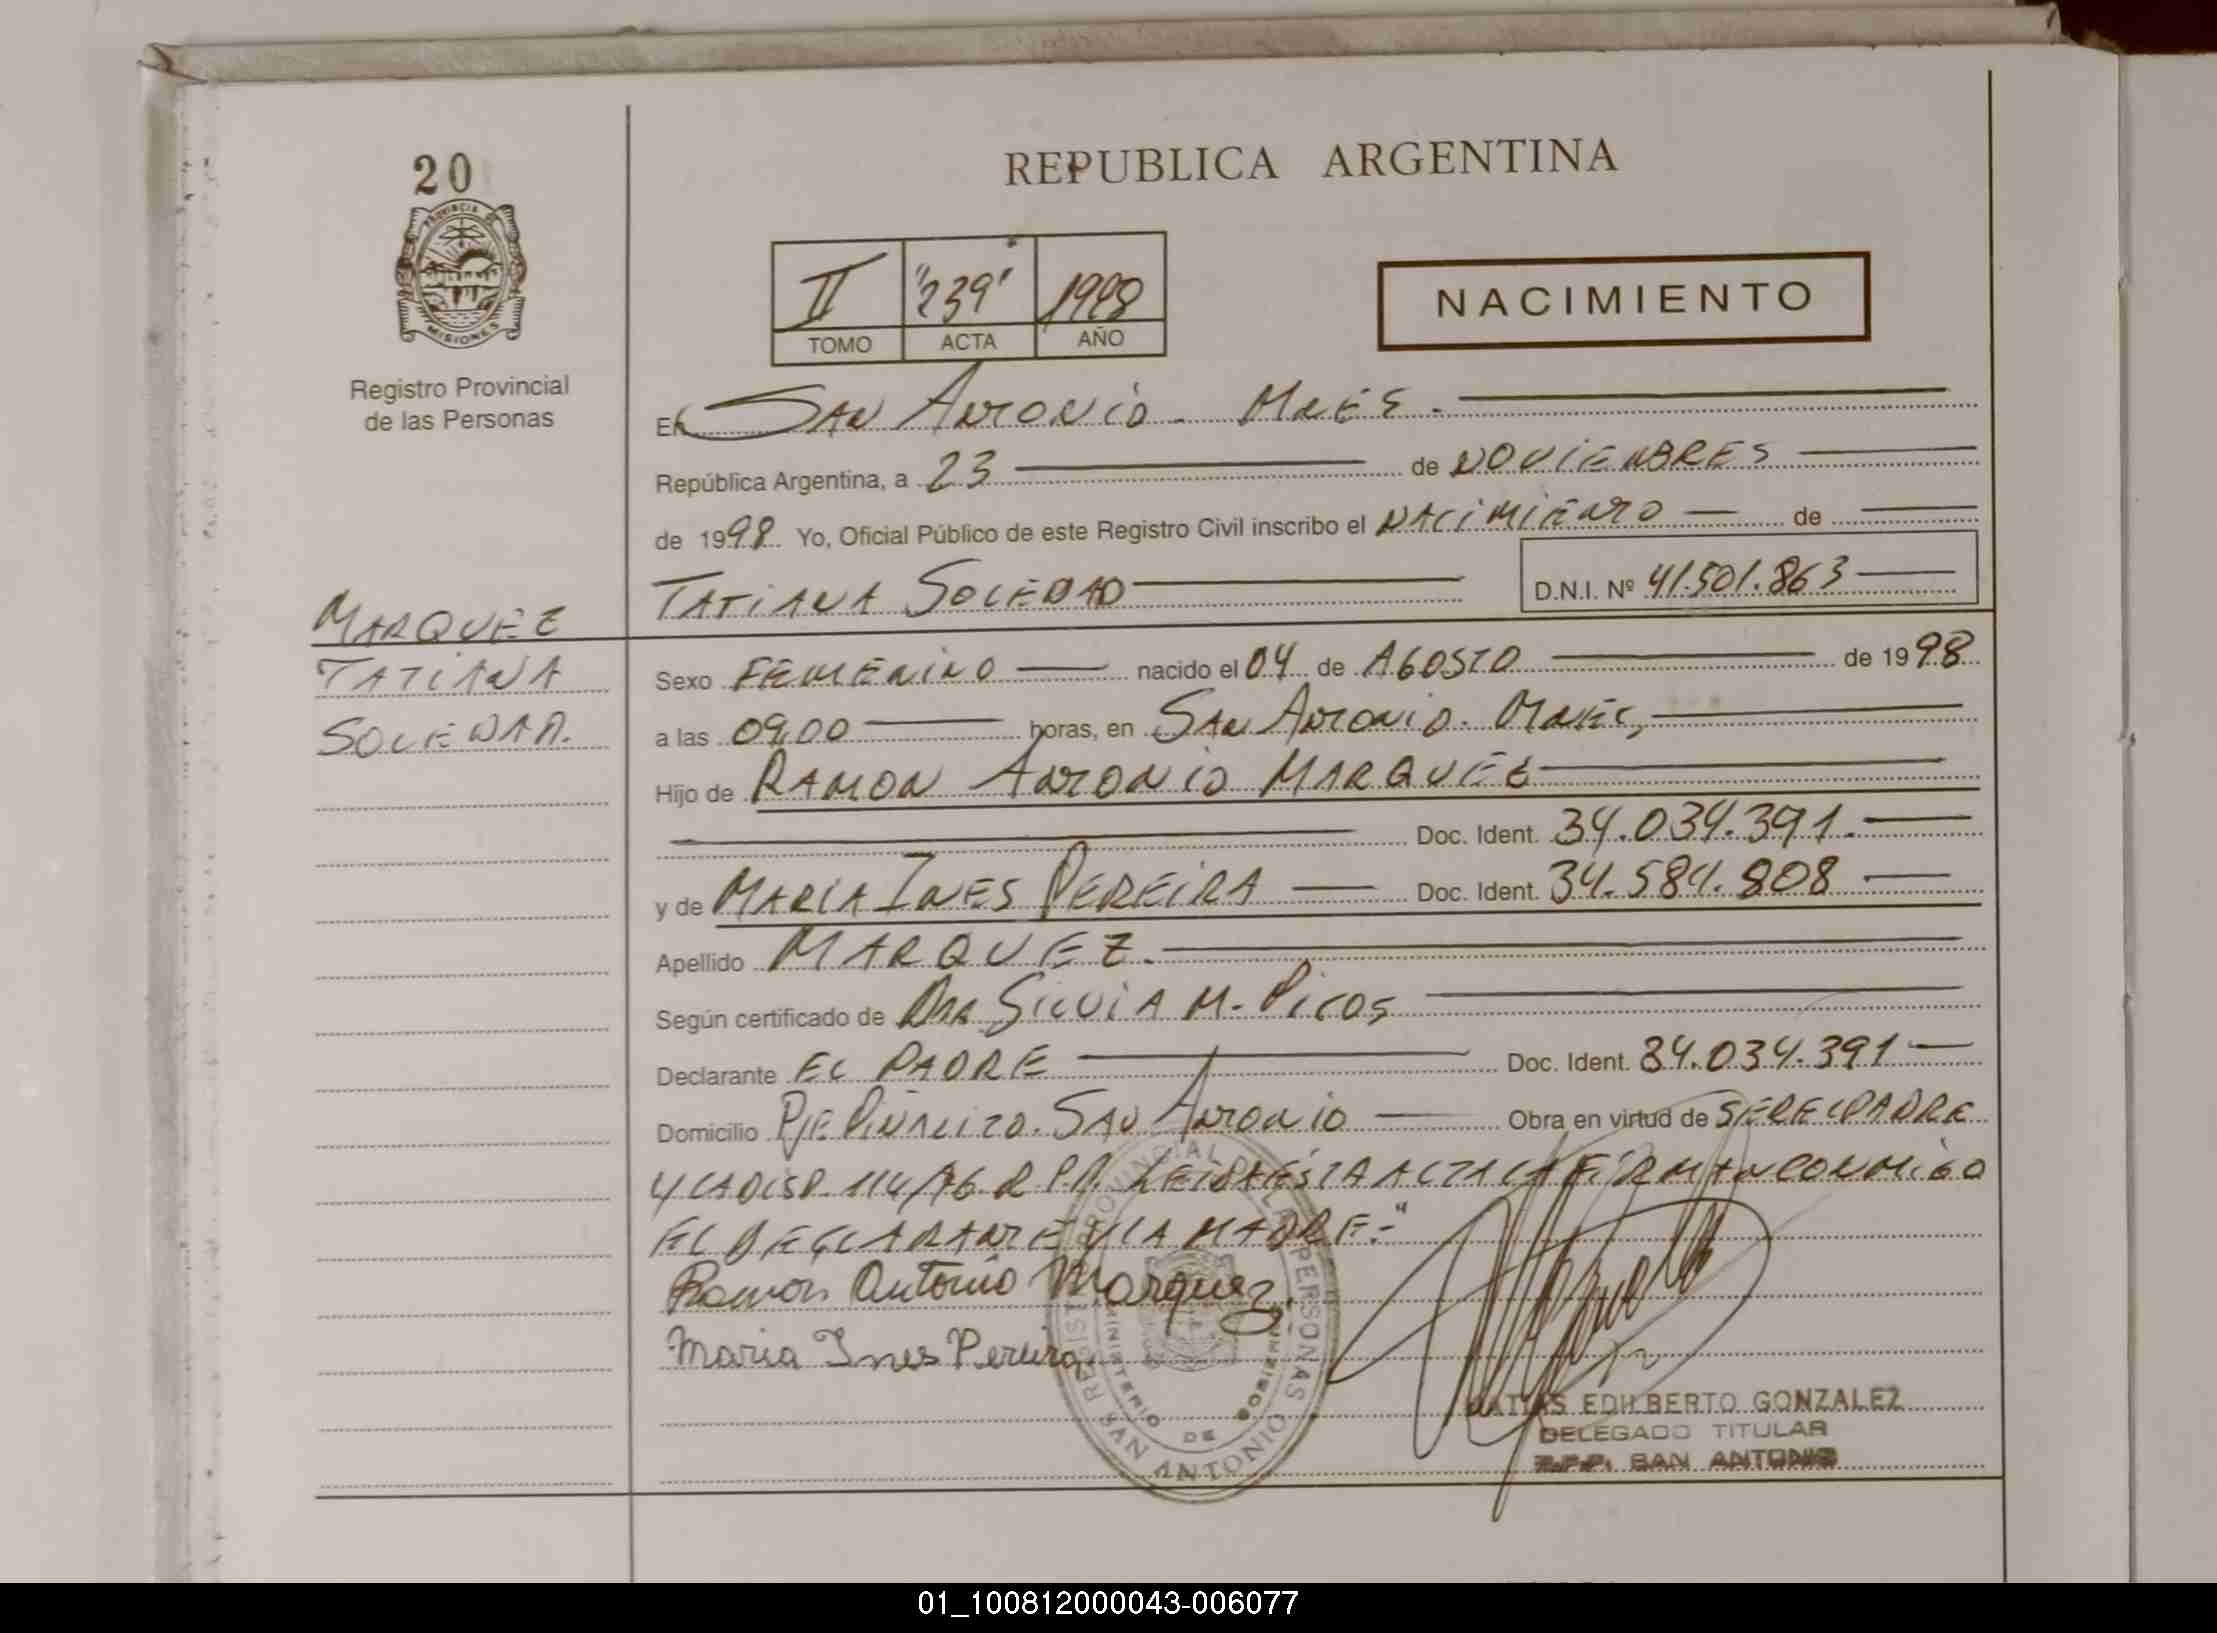 20
REPUBLICA ARGENTINA
PROVINCIA DE
MISIONES
Registro Provincial
de las Personas
II "239" 1998
TOMO ACTA AÑO
NACIMIENTO
En SAN ANTONIO - Mnes.
República Argentina, a 23 de NOVIEMBRES
de 1998. Yo, Oficial Público de este Registro Civil inscribo el NACIMIENTO de
TATIANA SOLEDAD D.N.I. Nº 41.501.863
MARQUEZ
TATIANA
SOLEDAD.
Sexo FEMENINO nacido el 04 de AGOSTO de 1998
a las 09,00 horas, en SAN ANTONIO. Mnes,
Hijo de RAMON ANTONIO MARQUEZ
Doc. Ident. 34.034.391.
y de MARIA INES PEREIRA Doc. Ident. 34.584.808
Apellido MARQUEZ.
Según certificado de DRA SILVIA M. Picos
Declarante EL PADRE Doc. Ident. 34.034.391
Domicilio PJE PIÑALITO. SAN ANTONIO Obra en virtud de SER EL PADRE
Y LA DISP. 114/76. R P.P. LEIDA ESTA ACTA LA FIRMAN CONMIGO
EL DECLARANTE Y LA MADRE.-"
Ramon Antonio Marquez.
Maria Ines Pereira
REGISTRO PROVINCIAL DE LAS PERSONAS
MINISTERIO DE GOBIERNO
SAN ANTONIO
MATIAS EDILBERTO GONZALEZ
DELEGADO TITULAR
R.P.P. SAN ANTONIO
01_100812000043-006077